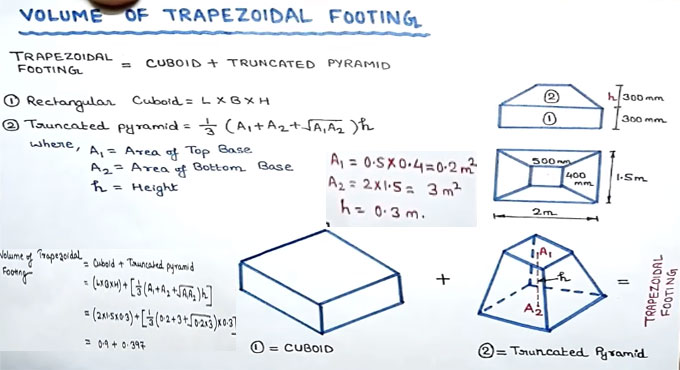 VOLUME OF TRAPEZOIDAL FOOTING
TRAPEZOIDAL FOOTING = CUBOID + TRUNCATED PYRAMID
① Rectangular Cuboid = L × B × H
② Truncated pyramid = 1/3 (A1 + A2 + √A1A2) h
where, A1 = Area of Top Base
A2 = Area of Bottom Base
h = Height
A1 = 0.5 × 0.4 = 0.2 m²
A2 = 2 × 1.5 = 3 m²
h = 0.3 m.
②
h 300 mm
①
300 mm
500 mm
400 mm
1.5m
2m
Volume of Trapezoidal Footing = Cuboid + Truncated pyramid
= (L×B×H) + [1/3 (A1 + A2 + √A1A2) h]
= (2×1.5×0.3) + [1/3 (0.2 + 3 + √0.2×3) × 0.3]
= 0.9 + 0.397
+
A1
h
A2
=
TRAPEZOIDAL FOOTING
① = CUBOID
② = Truncated Pyramid